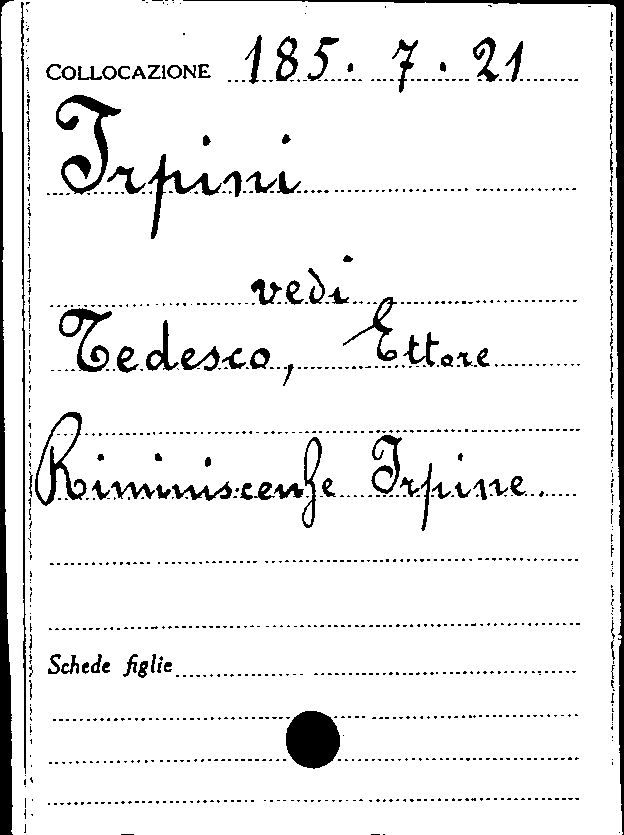 COLLOCAZIONE 185. 7. 21
Irpini
vedi
Tedesco, Ettore
Riminiscenze Irpine.
Schede figlie